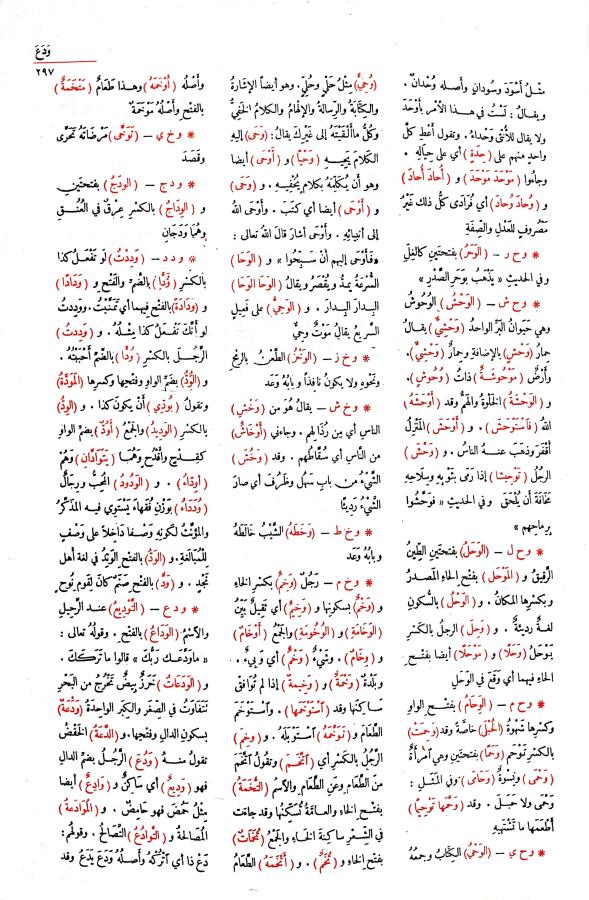 وَدَعَ
٢٩٧
مثْلُ أَسْوَدَ وسُودانٍ وأصله وُحْدانٌ .
ويقالُ : لَسْتُ في هذا الأمر بأوْحَدَ
ولا يقال للأُنثى وَحْداءُ . وتقول أعْطِ كلَّ
واحدٍ منهم على (حِدَةٍ) أي على حِيالِه .
وجاءوا (مَوْحَدَ مَوْحَدَ) و (أُحادَ أُحادَ)
و (وُحادَ وُحادَ) أي فُرادَى كلُّ ذلك غَيْرُ
مَصْروفٍ للعَدْلِ والصِّفَةِ
* و ح ر – (الوَحَرُ) بفتحتين كالغِلِّ
وفي الحديثِ « يَذْهَبُ بِوَحَرِ الصَّدْرِ »
* و ح ش – (الوَحْشُ) الوُحُوشُ
وهي حَيَوانُ البَرِّ الواحدُ (وَحْشِيٌّ) يقالُ
حِمارُ (وَحْشٍ) بالإضافةِ وحِمارٌ (وَحْشِيٌّ).
وأرضٌ (مَوْحُوشَةٌ) ذاتُ (وُحُوشٍ).
و (الوَحْشَةُ) الخَلْوَةُ والهَمُّ وقد (أوْحَشَهُ)
اللهُ (فاسْتَوْحَشَ) . و (أوْحَشَ) المَنْزِلُ
أقْفَرَ وذهب عنه الناسُ . و (وَحَّشَ)
الرجُلُ (تَوْحِيشا) إذا رَمَى بثَوْبِهِ وسِلاحِهِ
مَخَافَةَ أن يُلْحَقَ وفي الحديثِ « فَوَحَّشُوا
برِماحِهم »
* و ح ل – (الوَحَلُ) بفتحتينِ الطِّينُ
الرَّقيقُ و (المَوْحَل) بفتح الحاءِ المَصدرُ
وبكسرِها المكانُ . و (الوَحْلُ) بالسُّكونِ
لغةٌ رديئةٌ . و (وَحِلَ) الرجلُ بالكَسْرِ
يَوْحَلُ (وَحَلًا) و (مَوْحَلًا) أيضا بفتح
الحاءِ فيهما أي وَقَعَ في الوَحَلِ
* و ح م – (الوِحامُ) بفتح الواو
وكسرِها شَهْوةُ (الحُبْلَى) خاصَّةً وقد (وَحِمَتْ)
بالكسْرِ تَوْحَمُ (وَحَمًا) بفتحتين وهي امرأةٌ
(وَحْمَى) ونِسْوةٌ (وَحَامَى) وفي المَثَلِ :
وَحْمَى ولا حَبَلَ . وقد (وَحَّمَها تَوْحِيمًا)
أطْعَمها ما تَشْتَهِيهِ
* و ح ي – (الوَحْيُ) الكِتابُ وجمعُهُ
(وُحِيٌّ) مِثْلُ حَلْيٍ وحُلِيٍّ. وهو أيضا الإشارةُ
والكِتابةُ والرِّسالةُ والإلهامُ والكلامُ الخَفِيُّ
وكلُّ ما ألْقَيْتَهُ إلى غَيْرِكَ يقالُ: (وَحَى) إليهِ
الكلامَ يَحِيهِ (وَحْيًا) و (أوْحَى) أيضا
وهو أن يُكَلِّمَهُ بكلامٍ يُخْفِيهِ . و (وَحَى)
و (أوْحَى) أيضا أي كتَبَ . وأوْحَى اللهُ
إلى أنبيائِهِ . وأوْحَى أشارَ قالَ اللهُ تعالى :
« فَأَوْحَى إليهم أنْ سَبِّحُوا » و (الوَحا)
السُّرْعَةُ يمدُّ ويُقْصَرُ ويقالُ (الوَحَا الوَحَا)
البِدارَ البِدارَ . و (الوَحِيُّ) على فَعِيلٍ
السريعُ يقالُ مَوْتٌ وَحِيٌّ
* و خ ز – (الوَخْزُ) الطَّعْنُ بالرمحِ
ونَحْوِهِ ولا يكونُ نافِذًا وبابُهُ وَعَدَ
* و خ ش – يقالُ هُوَ من (وَخْشِ)
الناسِ أي مِن رُذَالِهم . وجاءني (أوْخَاشٌ)
من الناسِ أي سُقَّاطُهم . وقد (وَخُشَ)
الشَّيْءُ من بابِ سَهُلَ وظَرُفَ أي صارَ
الشَّيْءُ رَدِيئًا
* و خ ط – (وَخَطَهُ) الشَّيْبُ خالَطَهُ
وبابُهُ وَعَدَ
* و خ م – رجُلٌ (وَخِمٌ) بكسْرِ الخاءِ
و (وَخْمٌ) بسكونِها و (وَخِيمٌ) أي ثَقيلٌ بَيِّنُ
(الوَخَامَةِ) و (الوُخُومَةِ) والجَمْعُ (أوْخَامٌ)
و (وِخَامٌ) . وشَيْءٌ (وَخْمٌ) أي وَبِيءٌ .
وبلْدَةٌ (وَخْمَةٌ) و (وَخِيمَةٌ) إذا لم تُوافِقْ
ساكِنَها وقد (اسْتَوْخَمَها) . واسْتَوْخَمَ
الطَّعامَ و (تَوَخَّمَهُ) اسْتَوْبَلَهُ . و (وَخِمَ)
الرجُلُ بالكَسْرِ أي (اتَّخَمَ) وتقولُ اتَّخَمَ
من الطَّعامِ وعنِ الطَّعامِ والاسْمُ (التُّخَمَةُ)
بفتح الخاءِ والعامَّةُ تُسَكِّنُها وقد جاءَتْ
في الشِّعْرِ ساكِنةَ الخاءِ والجَمْعُ (تُخَمَاتٌ)
بفتح الخاءِ و (تُخَمٌ) . و (أتْخَمَهُ) الطَّعامُ
وأصْلُهُ (أوْخَمَهُ) وهذا طَعامٌ (مَتْخَمَةٌ)
بالفتحِ وأصْلُهُ مَوْخَمَةٌ
* و خ ي – (تَوَخَّى) مَرْضاتَهُ تَحَرَّى
وقَصَدَ
* و د ج – (الوَدَجُ) بفتحتينِ
و (الوِدَاجُ) بالكسْرِ عِرْقٌ في العُنُقِ
وهُما وَدَجَانِ
* و د د – (وَدِدْتُ) لو تَفْعَلُ كذا
بالكسرِ (وُدًّا) بالضَّمِّ والفَتْحِ و (وَدَادًا)
و (وَدَادَةً) بالفتحِ فيهما أي تَمَنَّيْتُ. ووَدِدْتُ
لو أنَّكَ تَفْعَلُ كذا مِثْلُهُ . و (وَدِدْتُ)
الرَّجُلَ بالكسْرِ (وُدًّا) بالضَّمِّ أحْبَبْتُهُ .
و (الوُدُّ) بضمِّ الواوِ وفتحِها وكسرِها (المَوَدَّةُ)
وتقولُ (بِوُدِّي) أنْ يكونَ كذا . و (الوِدُّ)
بالكسْرِ (الوَدِيدُ) والجَمْعُ (أَوُدٌّ) بضم الواو
كقِدْحٍ وأقْدُحٍ وهُما (يَتَوادَّانِ) وهُمْ
(أوِدَّاءُ) . و (الوَدُودُ) المُحِبُّ ورِجالٌ
(وُدَدَاءُ) بوَزْنِ فُقَهاءَ يَسْتَوِي فيه المذكَّرُ
والمؤنَّثُ لكَونِهِ وَصْفًا داخِلًا على وَصْفٍ
للمُبالَغةِ. و (الوَدُّ) بالفتحِ الوَتِدُ في لغة أهل
نَجْدٍ . و (وَدٌّ) بالفتحِ صَنَمٌ كانَ لِقومِ نُوحٍ
* و د ع – (التَّوْدِيعُ) عندَ الرَّحِيلِ
والاسْمُ (الوَدَاعُ) بالفتحِ . وقولُهُ تعالى :
« ما وَدَّعَكَ رَبُّكَ » قالوا ما تَرَكَكَ .
و (الوَدَعَاتُ) خَرَزٌ بيضٌ تَخْرُجُ من البَحْرِ
تَتَفاوَتُ في الصِّغَرِ والكِبَرِ الواحدةُ (وَدْعَةٌ)
بسكونِ الدالِ وفتحِها. و (الدَّعَةُ) الخَفْضُ
تقولُ منهُ (وَدُعَ) الرَّجُلُ بضمِّ الدالِ
فهو (وَدِيعٌ) أي ساكِنٌ و (وَادِعٌ) أيضا
مِثْلُ حَمُضَ فهو حامِضٌ . و (المُوَادَعَةُ)
المُصالَحَةُ و (التَّوادُعُ) التَّصالُحُ . وقولُهم:
دَعْ ذا أي اتْرُكْهُ وأصلُهُ وَدَعَ يَدَعُ وقد